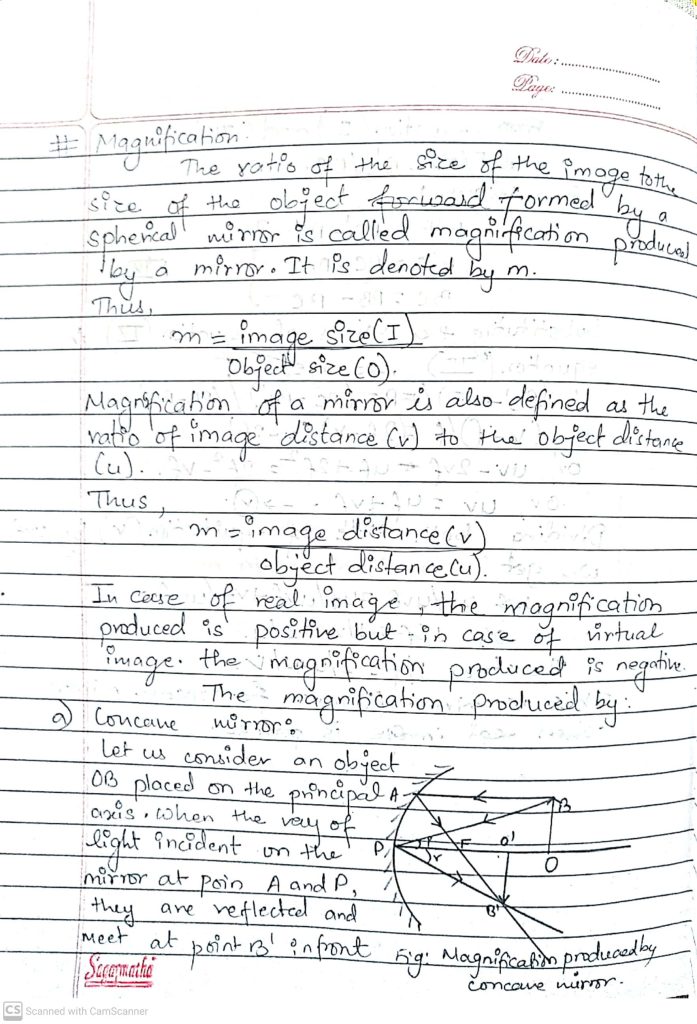 Date: ....................
Page: ....................
# Magnification
The ratio of the size of the image to the
size of the object forward formed by a
spherical mirror is called magnification produced
by a mirror. It is denoted by m.
Thus,
m = image size(I)
Object size(O).
Magnification of a mirror is also defined as the
ratio of image distance (v) to the object distance
(u).
Thus,
m = image distance(v)
object distance(u).
In case of real image, the magnification
produced is positive but in case of virtual
image. the magnification produced is negative.
The magnification produced by:
a) Concave mirror:
Let us consider an object
OB placed on the principal
axis. When the ray of
light incident on the
mirror at poin A and P,
they are reflected and
meet at point B' infront
A
B
P
i
r
F
O'
O
B'
Fig: Magnification produced by
concave mirror.
Sagarmatha
CS Scanned with CamScanner